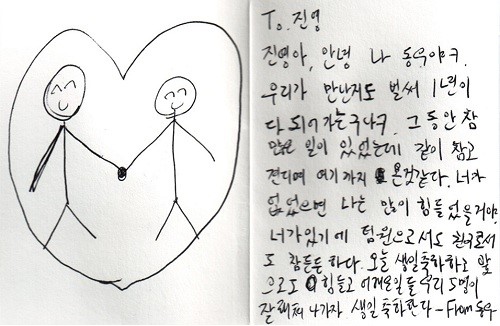 To. 진영
진영아, 안녕 나 동우야ㅋ.
우리가 만난지도 벌써 1년이
다 되어 가는구나ㅋ. 그 동안 참
많은 일이 있었는데 같이 참고
견디며 여기까지 온것같다. 너가
없었으면 나는 많이 힘들었을거야.
너가 있기에 팀원으로서도 친구로서
도 참 든든하다. 오늘 생일 축하하고 앞
으로도 힘들고 어려운일들 우리 5명이
잘 헤쳐 나가자 생일 축하한다 - From 동우